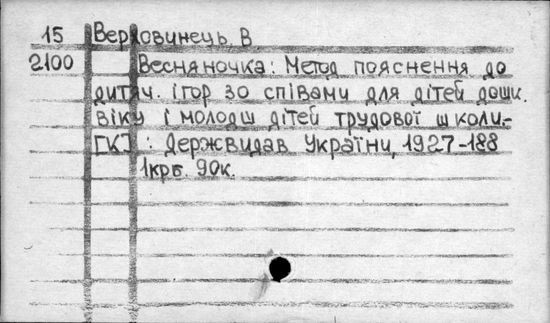 15 Верховинець, В
2100 Весняночка: Метод пояснення до
дитяч. ігор зо співами для дітей дошк.
віку і молодш дітей трудової школи,-
[К]: Держвидав України, 1927-188
1крб. 90к.